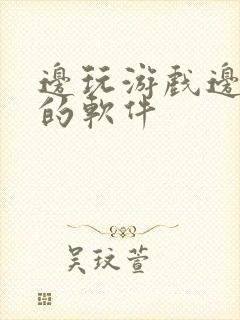 邊玩游戲邊
的軟件
吴玟萱